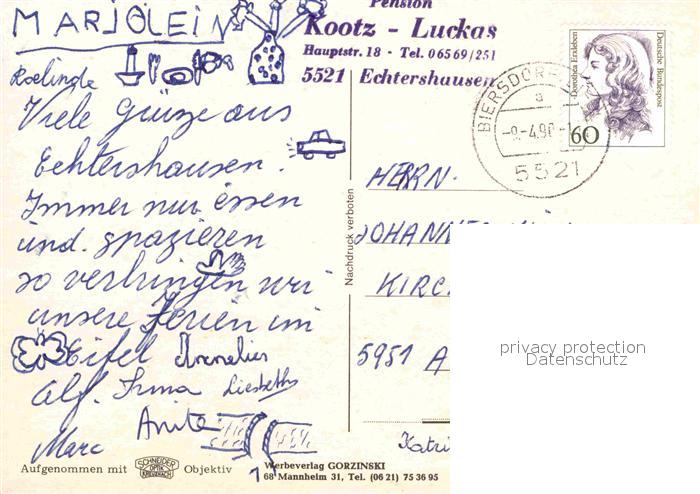 MARJOLEIN
Roelinde
Viele Grüze aus
Echtershausen.
Immer nur essen
und. spazieren
so verbringen wir
unsere Ferien im
Eifel Annelies
Alf. Irma Liesbeth
Anita
Marc
Aufgenommen mit SCHNEIDER OPTIK KREUZNACH Objektiv
Nachdruck verboten
Werbeverlag GORZINSKI
68 Mannheim 31, Tel. (06 21) 75 36 95
Pension
Kootz - Luckas
Hauptstr. 18 - Tel. 06569/251
5521 Echtershausen
BIERSDORF
a
-9.-4.90
5521
Dorothea Erxleben
Deutsche Bundespost
60
HERRN.
JOHANNES
KIRC
5951 A
Katri
privacy protection
Datenschutz